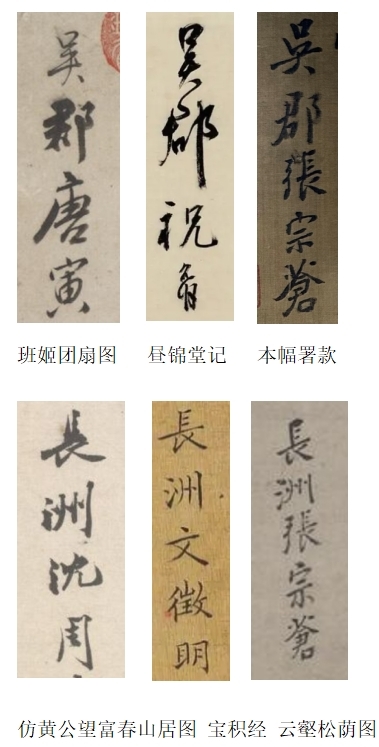 吳郡唐寅
吳郡祝允明
吳郡張宗蒼
班姬团扇图 昼锦堂记 本幅署款
長洲沈周
長洲文徵明
長洲張宗蒼
仿黄公望富春山居图 宝积经 云壑松荫图